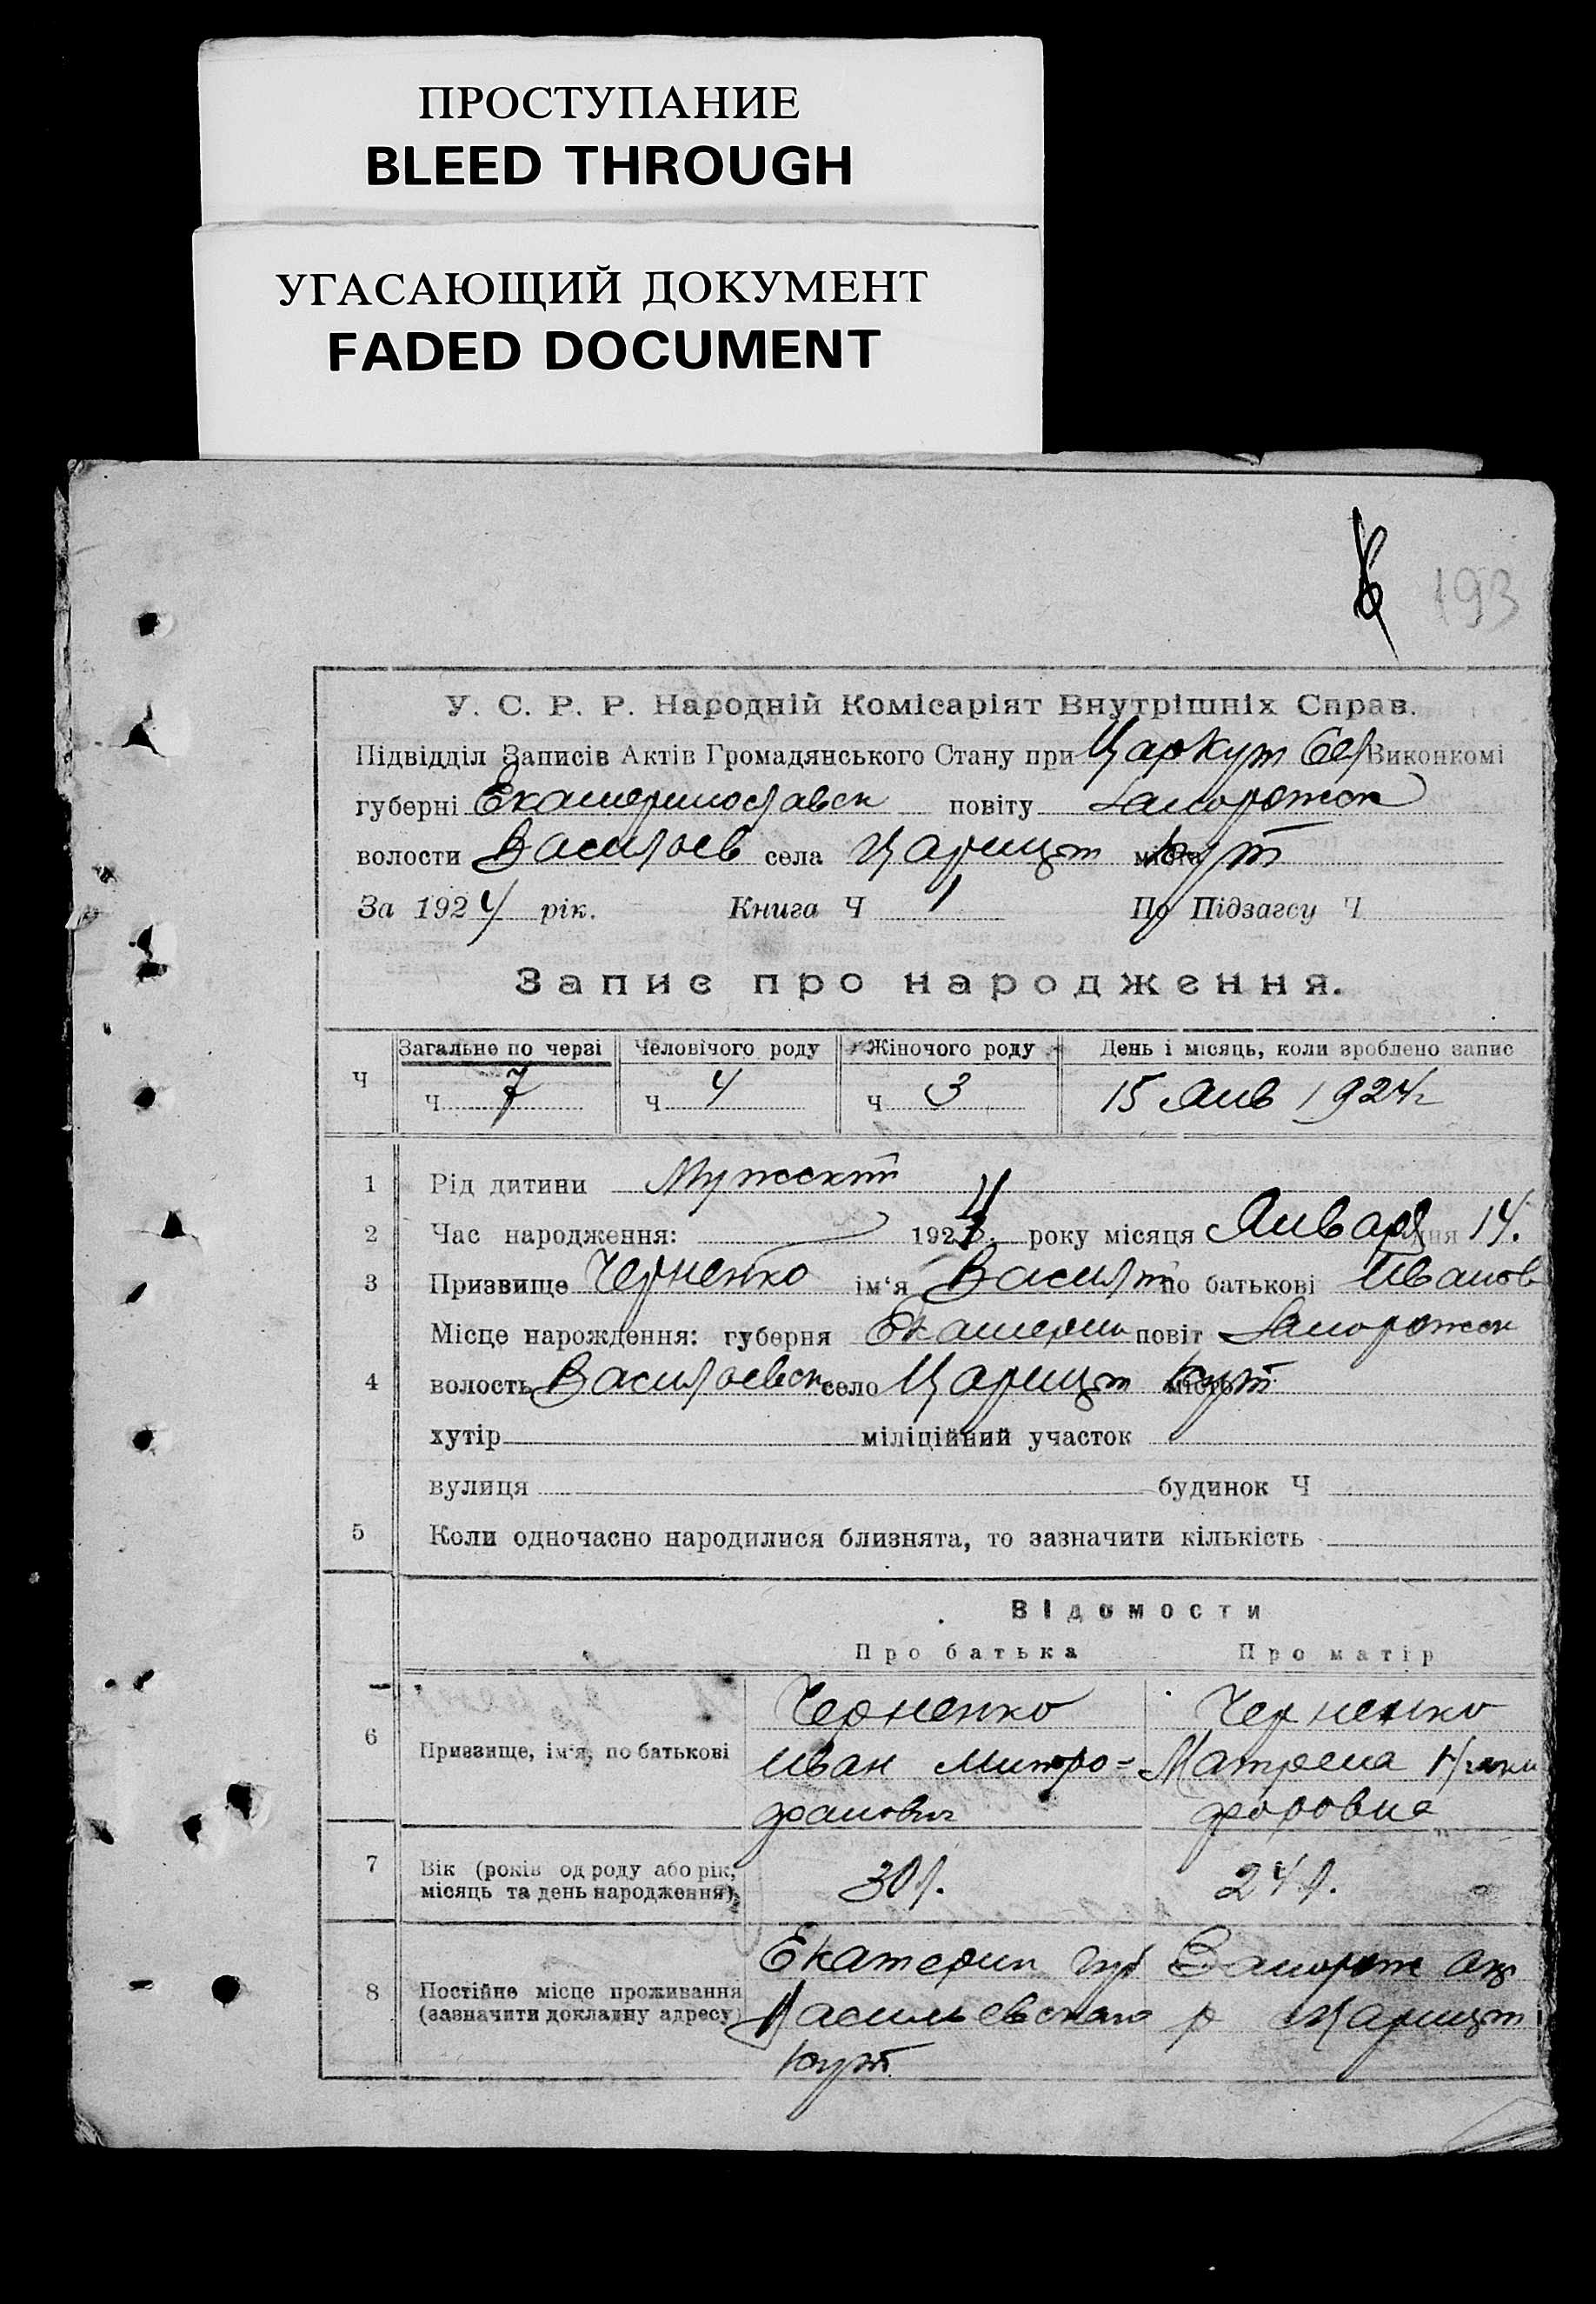 ПРОСТУПАНИЕ
BLEED THROUGH
УГАСАЮЩИЙ ДОКУМЕНТ
FADED DOCUMENT
193
У. С. Р. Р. Народній Комісаріят Внутрішніх Справ.
Підвідділ Записів Актів Громадянського Стану при Царкут Сел Виконкомі
губерні Екатеринославск повіту Запорожск
волости Васильев села Царицт міста Кут
За 1924 рік. Книга Ч 1 По Підзагсу Ч
Запис про народження.
Загальне по черзі Человічого роду Жіночого роду День і місяць, коли зроблено запис
Ч Ч 7 Ч 4 Ч 3 15 Янв 1924г
1 Рід дитини Мужскип
2 Час народження: 1924 року місяця Января дня 14.
3 Призвище Черненко ім'я Васил по батькові Иванов
Місце нарождення: губерня Екатерин повіт Запорожск
4 волость Васильевск село Царицт місто Кут
хутір міліційний участок
вулиця будинок Ч
5 Коли одночасно народилися близнята, то зазначити кількість
Відомости
Про батька Про матір
Черненко Черненко
6 Призвище, ім'я, по батькові Иван Митро= Матрена
фанович форовна
7 Вік (років од роду або рік, місяць та день народження) 30 л. 24 л.
8 Постійне місце проживання (зазначити докладну адресу)
Екатерин губ Запорож окр
Васильевского р Царицт
Кут